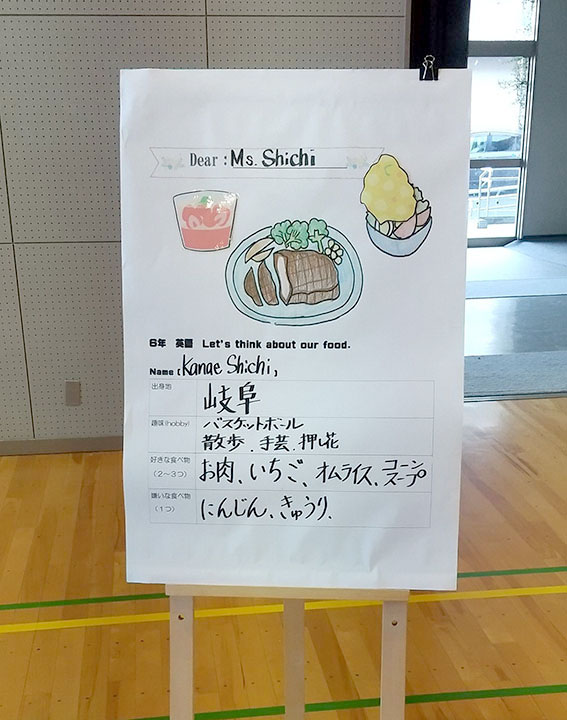 Dear : Ms. Shichi
6年 英語 Let's think about our food.
Name (Kanae Shichi)
出身地
岐阜
趣味(hobby)
バスケットボール
散歩．手芸．押し花
好きな食べ物
（２～３つ）
お肉、いちご、オムライス、コーン
スープ
嫌いな食べ物
（１つ）
にんじん、きゅうり、